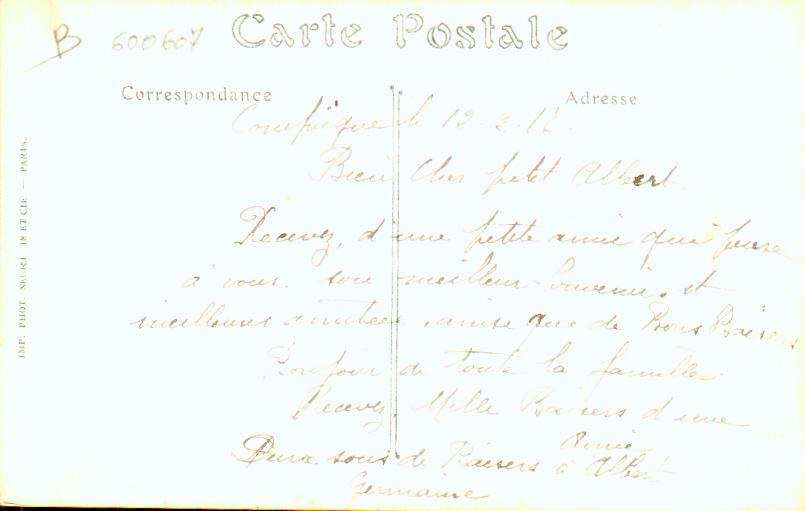 B 600607 Carte Postale
Correspondance Adresse
Compiègne le 12-2-12.
Bien Cher petit Albert.
Recevez, d'une petite amie qui pense
à vous. son meilleur Souvenir. et
meilleures amitiées, ainse que de Bons Baisers
Bonjour de toute la famille.
Recevez. Mille Baisers d'une
Amie
Deux sous de Baisers à Albert
Germaine
IMP. PHOT. NEURDEIN ET CIE — PARIS.